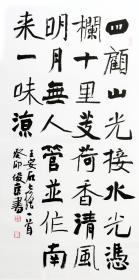 四顧山光接水光憑
欄十里芰荷香清風
明月無人管並作南
来一味涼
王安石一首
癸卯俊書